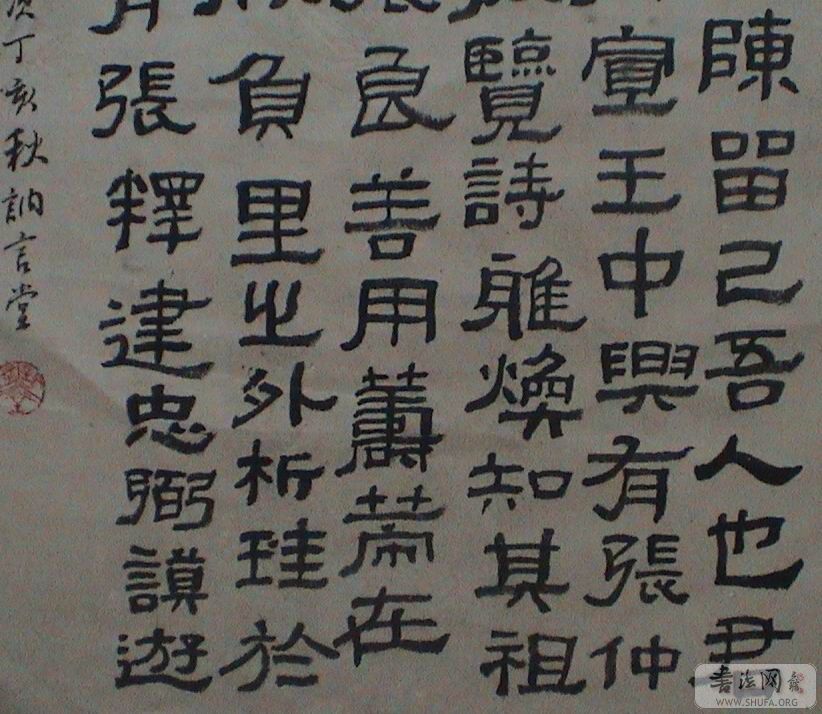 陳留己吾人也君
宣王中興有張仲
覽詩雅煥知其祖
良善用籌策在
負里之外析珪於
張釋建忠弼謨遊
丁亥秋訥言堂
書法网
WWW.SHUFA.ORG